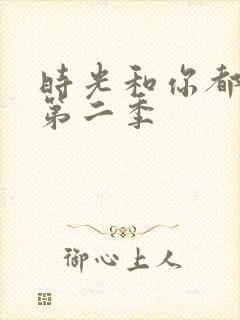 時光和你都
第二季
御心上人